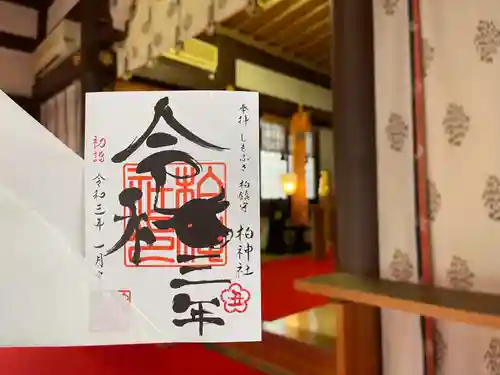 奉拝 しもふさ 柏鎮守
柏神社
令和三年
丑
初詣
令和三年 一月